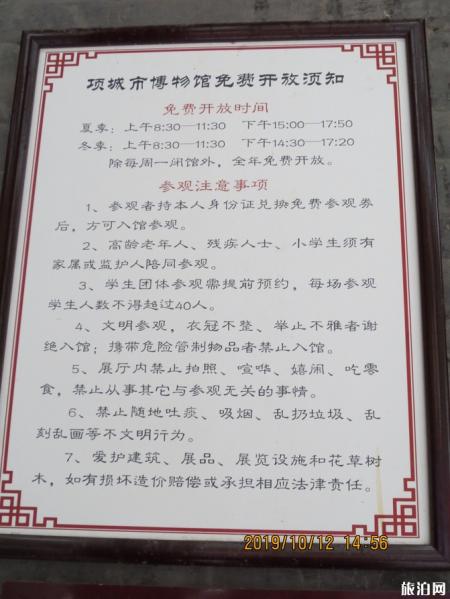 项城市博物馆免费开放须知
免费开放时间
夏季：上午8:30—11:30 下午15:00—17:50
冬季：上午8:30—11:30 下午14:30—17:20
除每周一闭馆外，全年免费开放。
参观注意事项
1、参观者持本人身份证兑换免费参观券
后，方可入馆参观。
2、高龄老年人、残疾人士、小学生须有
家属或监护人陪同参观。
3、学生团体参观需提前预约，每场参观
学生人数不得超过40人。
4、文明参观，衣冠不整、举止不雅者谢
绝入馆；携带危险管制物品者禁止入馆。
5、展厅内禁止拍照、喧哗、嬉闹、吃零
食，禁止从事其它与参观无关的事情。
6、禁止随地吐痰、吸烟、乱扔垃圾、乱
刻乱画等不文明行为。
7、爱护建筑、展品、展览设施和花草树
木，如有损坏造价赔偿或承担相应法律责任。
2019/10/12 14:56
旅泊网